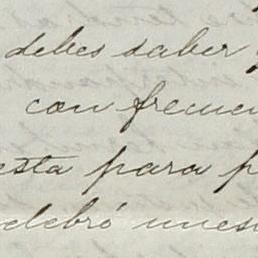 debes saber
con frecuen
esta para p
elebró nues